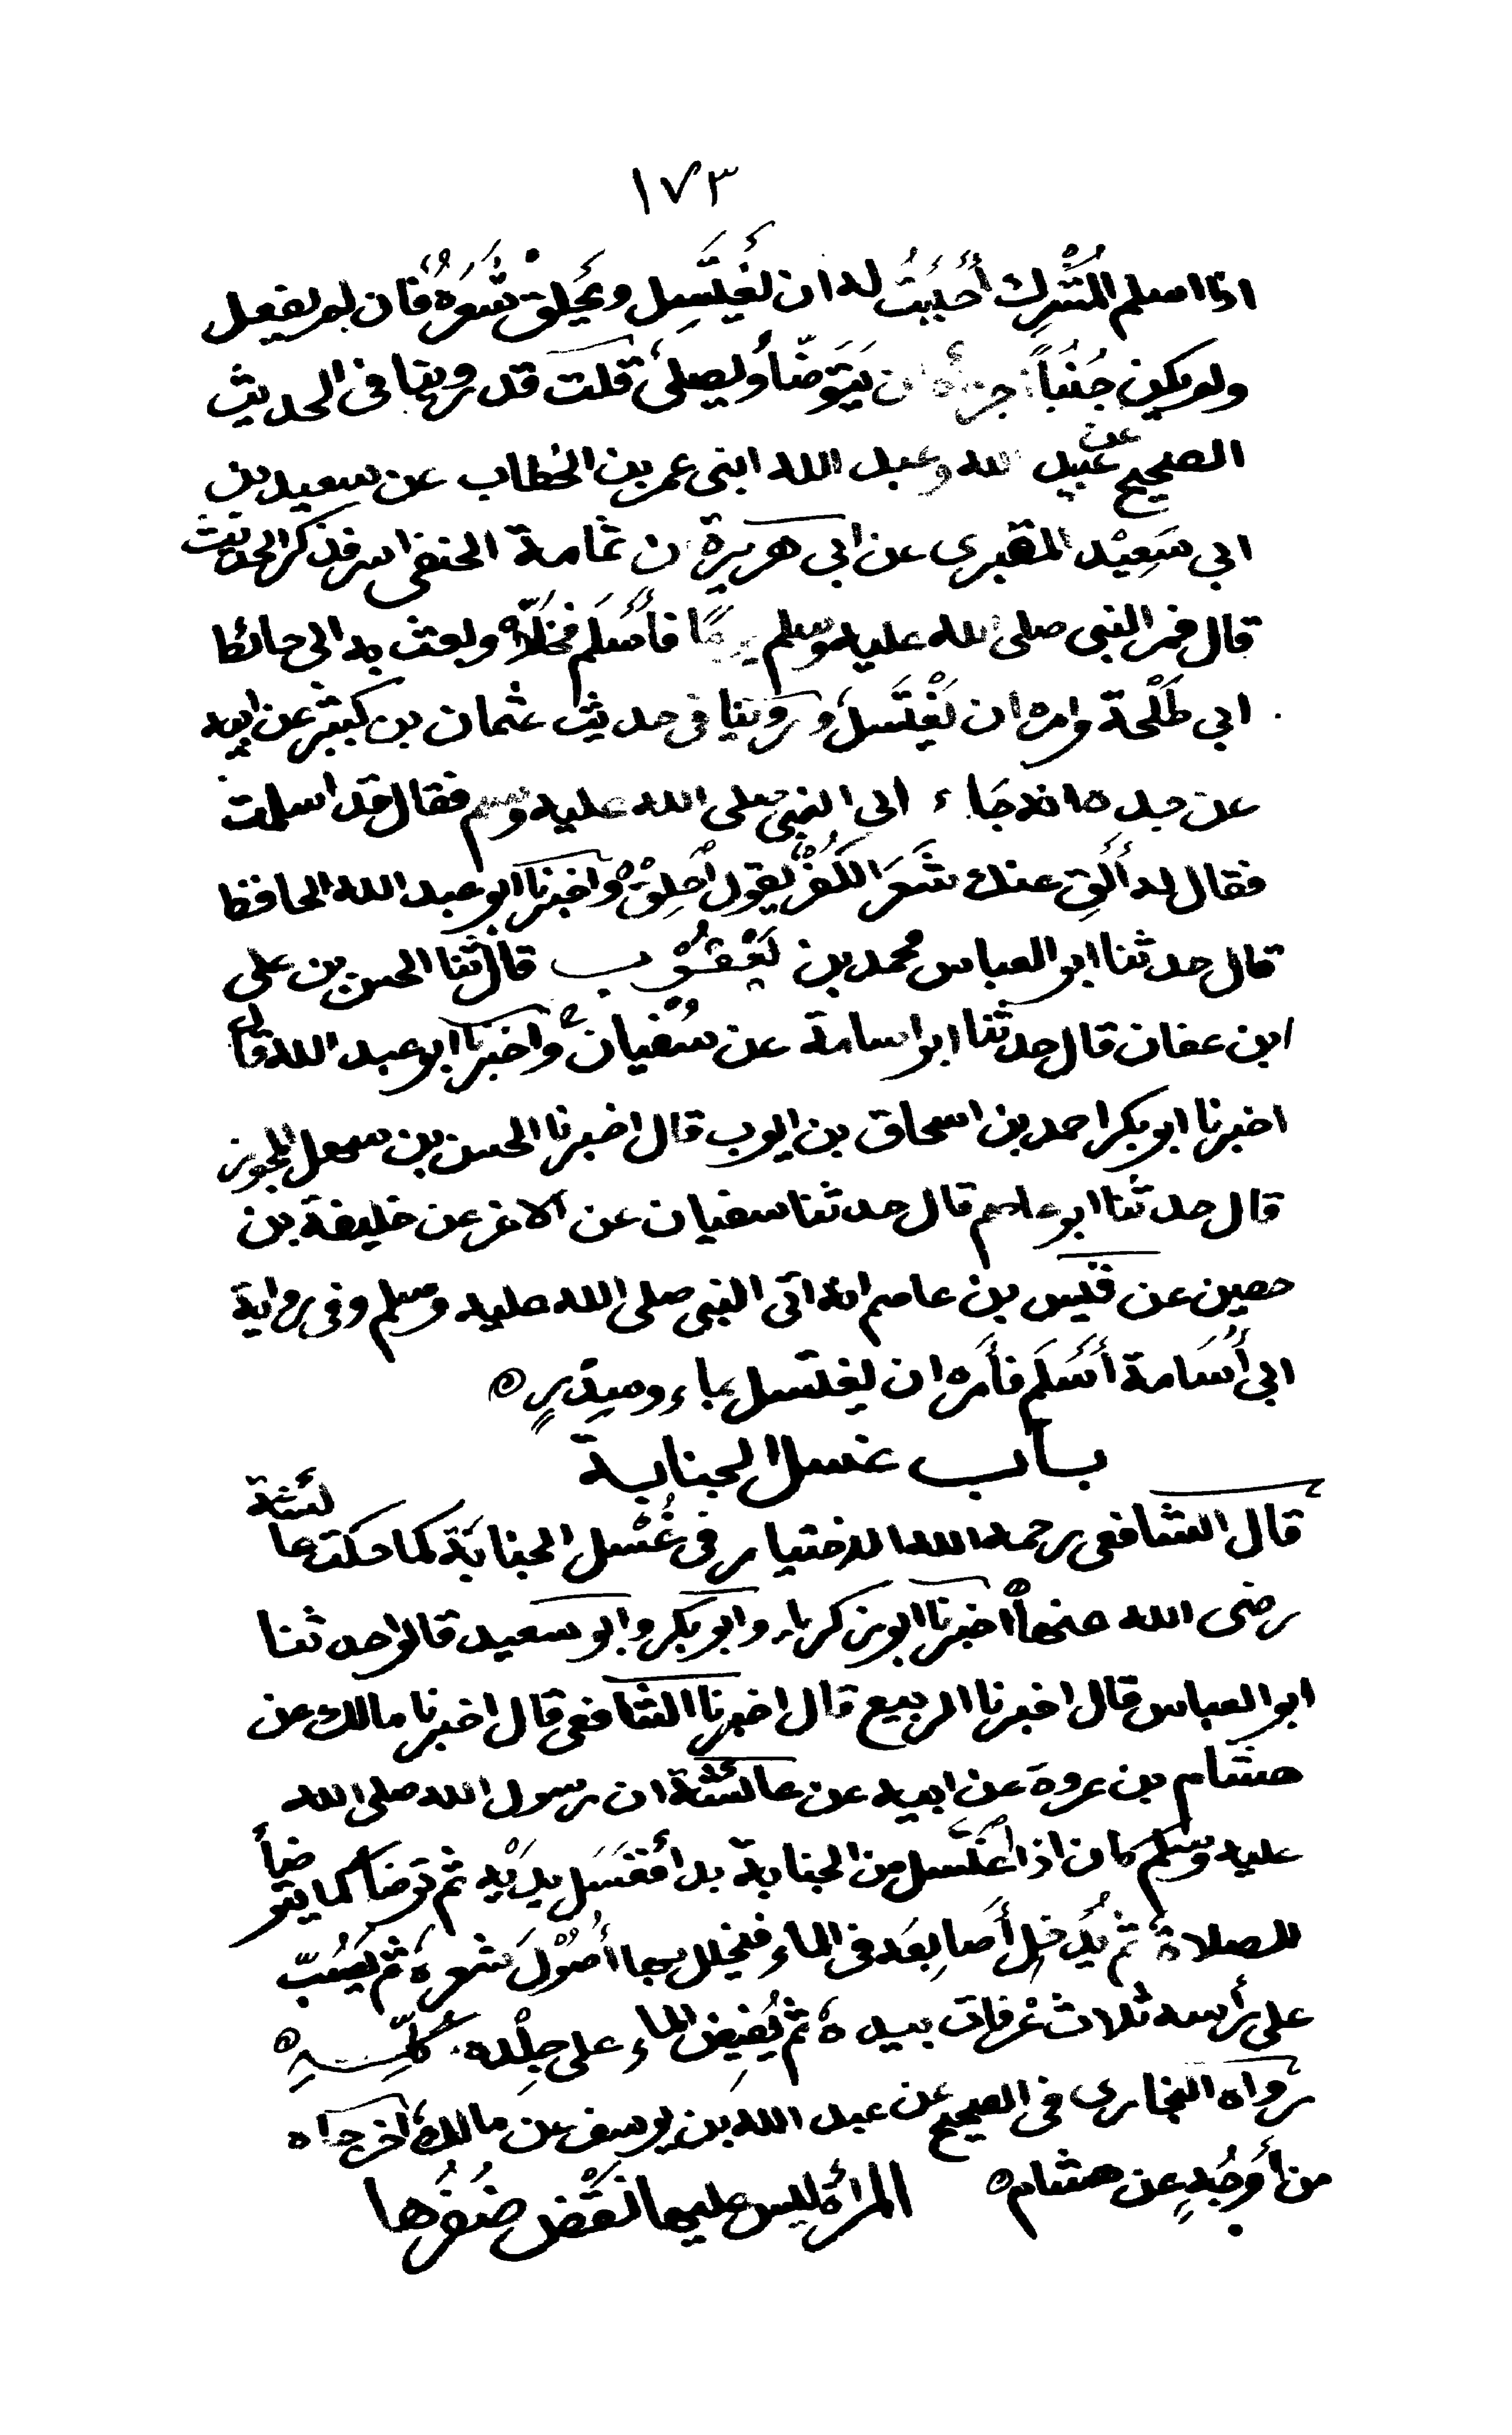 ١٧٣
اذا اسلم المُشْرِك أَحْبَبْتُ له ان يَغْتَسِل ويَحْلِقْ شَعَرَهُ فان لم يفعل
ولم يكن جُنُباً اجزأه ان يَتَوَضّأ ويصلى قلت قد روينا فى الحديث
الصحيح عن عبيد الله وعبد الله ابنى عمر بن الخطاب عن سعيد بن
ابي سَعِيْد المقبرى عن ابى هريرة ان ثمامة الحنفى اسر فذكر الحديث
قال فمر النبى صلى الله عليه وسلم يومًا فأَسْلَم فخلّاه وبعث به الى حائط
ابي طَلْحة وامره ان يَغْتَسل وروينا فى حديث عثمان بن كثير عن ابيه
عن جده انه جَاء الى النبى صلى الله عليه وسلم فقال قد اسلمت
فقال له أَلْقِ عنك شَعَرَ الكُفْرْ يقول أحْلِقْ واخبرنا ابو عبد الله الحافظ
قال حدثنا ابو العباس محمد بن يَعْقُوْب قال ثنا الحسن بن على
ابن عفان قال حدثنا ابو اسامة عن سُفْيان واخبرنا ابو عبد الله قال
اخبرنا ابو بكر احمد بن اسحاق بن ايوب قال اخبرنا الحسن بن سهل المجوز
قال حدثنا ابو عاصم قال حدثنا سفيان عن الاغر عن خليفة بن
حصين عن قيس بن عاصم انه اتى النبى صلى الله عليه وسلم وفى رواية
ابى أُسَامة أَسْلَم فأمره ان يغتسل بماء وسِدْرٍ ه
باب غسل الجنابة
قال الشافعى رحمه الله الاختيار فى غُسْل الجنابَة كما حكت عائشة
رضى الله عنها اخبرنا ابو زكرياء وابو بكر وابو سعيد قالوا حدثنا
ابو العباس قال اخبرنا الربيع قال اخبرنا الشافعى قال اخبرنا مالك عن
هشام بن عروة عن ابيه عن عائشة ان رسول الله صلى الله
عليه وسلم كان اذا اغْتَسل من الجنابة بدأ فغَسَل يدَيْه ثم توضأ كما يتوضأ
للصلاة ثم يُدخِل أَصابِعَه فى الماء فيخلل بها أُصُوْلَ شعره ثم يَصُبّ
على رأسه ثلاث غُرفات بيده ثم يُفِيض الماء على جِلْده كلِّـــهِ ه
رواه البخارى فى الصحيح عن عبد الله بن يوسف عن مالك اخرجاه
من أَوْجُهٍ عن هشام ه المرأة ليس عليها نَقْض ضَفُرُها